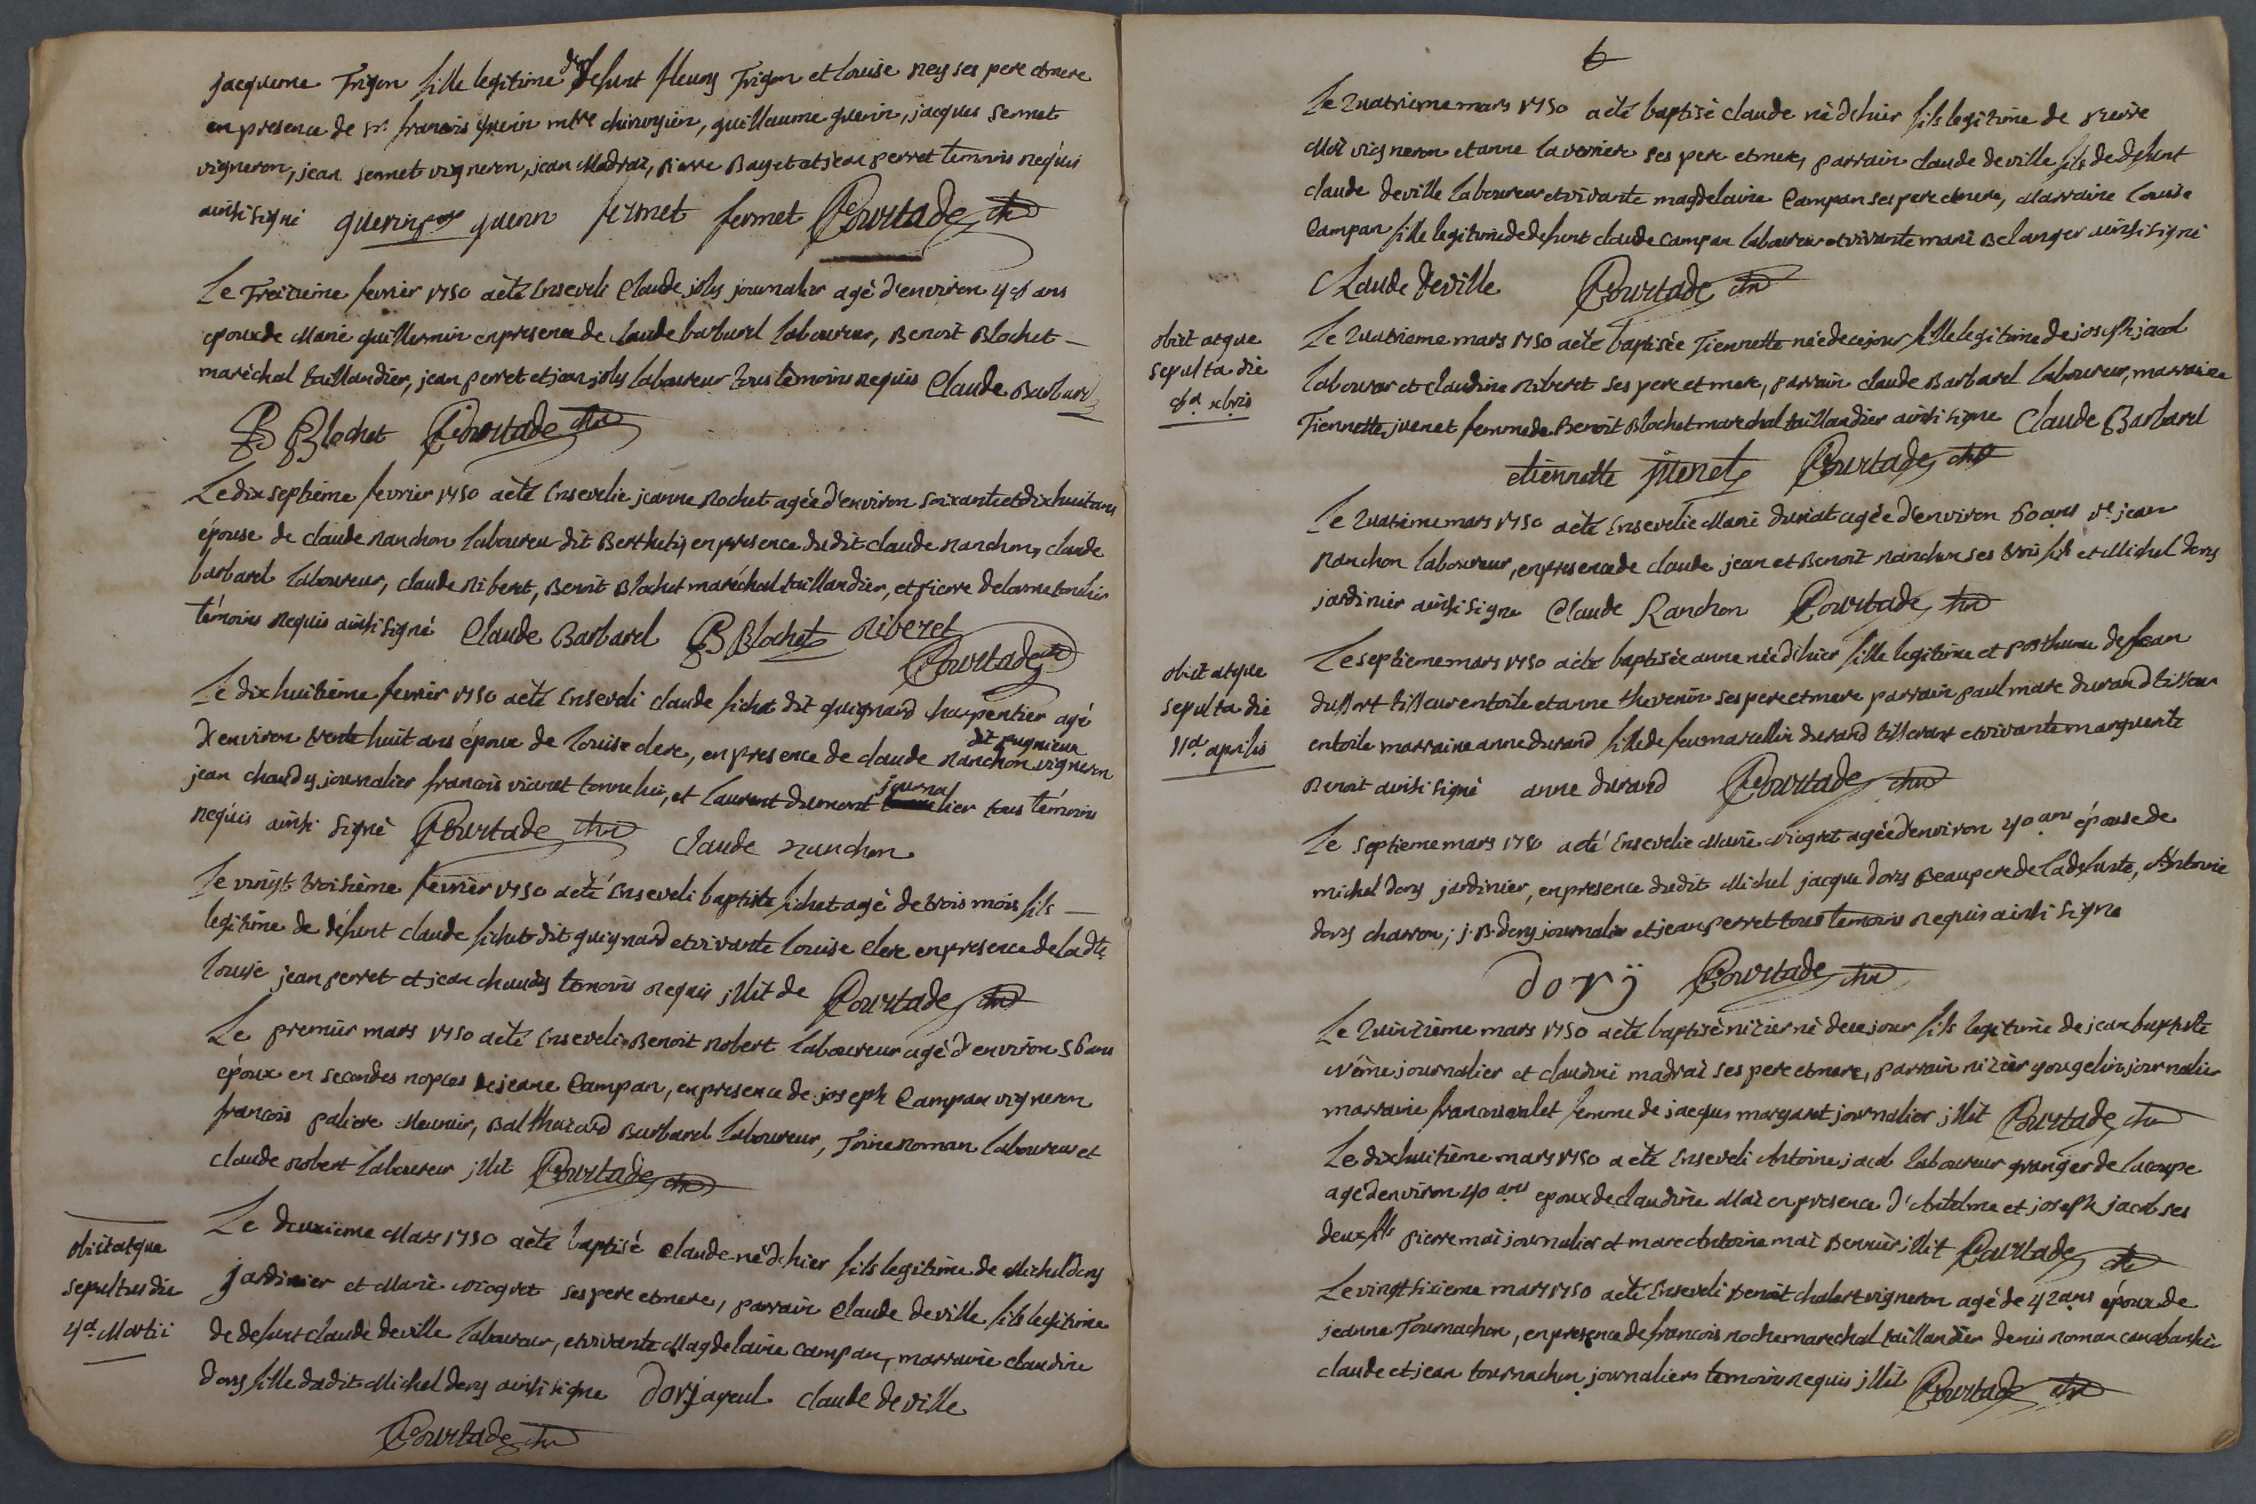 jacqueme Trigon fille legitime de defunt fleury Trigon et louise ney ses pere et mere
en presence de sr. francois guerin mtre chirurgien, guillaume guerin, jacques sermet
vigneron, jean sermet vigneron, jean Madrai, pierre Bayet et jean perret temoins requis
ainsi signé guerin guerin fermet fermet Courtade
Le Treizieme fevrier 1750 a eté Enseveli Claude joly journalier agé d'environ 48 ans
epoux de Marie guillermin en presence de claude barbarel laboureur, Benoit Blochet
maréchal taillandier, jean perret et jean joly laboureur tous temoins requis Claude Barbarel
B Blochet Courtade
Le dix septième fevrier 1750 a eté Ensevelie jeanne Rochet agée d'environ soixante et dix huit ans
épouse de claude Ranchon laboureur dit Berthely en presence du dit claude Ranchon, claude
barbarel laboureur, claude Riberet, Benoit Blochet maréchal taillandier, et pierre delorme tonelier
témoins requis ainsi signé Claude Barbarel B Blochet Riberet
Courtade
Le dix huitième fevrier 1750 a eté Enseveli claude fichet dit guignard charpentier agé
d'environ trente huit ans époux de louise clerc, en presence de claude Ranchon dit pugnieux vigneron
jean chaudy journalier francois vianet tonnelier, et laurent dumont journalier tous témoins
requis ainsi signé Courtade claude ranchon
Le vingt troisième fevrier 1750 a eté Enseveli baptiste fichet agé de trois mois fils
legitime de défunt claude fichet dit guignard et vivante louise clerc en presence de la dte
louise jean perret et jean chaudy temoins requis illit de Courtade
Le premier mars 1750 a eté Enseveli Benoit Robert laboureur agé d'environ 56 ans
époux en secondes noces de jeane Campan, en presence de joseph Campan vigneron
francois paliere Meunier, Balthazard Barbarel laboureur, Toine Roman laboureur et
claude Robert laboureur illit Courtade
obiit atque
sepultus die
4a Martii
Le deuxieme Mars 1750 a eté baptisé claude né d'hier fils legitime de Michel Dory
jardinier et Marie viogret ses pere et mere, parrain Claude deville fils legitime
de defunt claude deville laboureur, et vivante Magdelaine campan, marraine claudine
dory fille du dit Michel dory ainsi signé dory ayeul claude deville
Courtade
6
Le quatrieme mars 1750 a eté baptisé claude né d'hier fils legitime de pierre
Mai vigneron et anne laverriere ses pere et mere, parrain claude deville fils de defunt
claude deville laboureur et vivante magdelaine Campan ses pere et mere, Marraine louise
Campan fille legitime de defunt claude Campan laboureur et vivante marie Belanger ainsi signé
Claude deville Courtade
obiit atque
sepulta die
8a xbris
Le quatrieme mars 1750 a eté baptisée Tiennette née de ce jour fille legitime de joseph jacob
laboureur et claudine Riberet ses pere et mere, parrain claude Barbarel laboureur, marraine
Tiennette juenet femme de Benoit Blochet marechal taillandier ainsi signé Claude Barbarel
etiennette juenet Courtade
Le quatrieme mars 1750 a eté Ensevelie Marie duriat agée d'environ 60 ans ve jean
Ranchon laboureur, en presence de claude jean et Benoit Ranchon ses trois fils et Michel dory
jardinier ainsi signe Claude Ranchon Courtade
obiit atque
sepulta die
11a aprilis
Le septieme mars 1750 a eté baptisée anne née d'hier fille legitime et posthume de jean
dufort tisseur en toile et anne thevenin ses pere et mere parrain paul marc durand tisseur
en toile marraine anne durand fille de feu marcellin durand tisserant et vivante marguerite
Benoit ainsi signé anne durand Courtade
Le septieme mars 1750 a eté Ensevelie Marie viogret agée d'environ 40 ans épouse de
michel dory jardinier, en presence du dit Michel jacque dory Beaupere de la defunte, Antoine
dory charron, j. B. dory journalier et jean perret tous temoins requis ainsi signe
dory Courtade
Le quinzième mars 1750 a eté baptisé nizier né de ce jour fils legitime de jean baptiste
journalier et claudine madrai ses pere et mere, parrain nizier gougelin journalier
marraine francoise valet femme de jacques margaret journalier illit Courtade
Le dix huitième mars 1750 a eté Enseveli Antoine jacob laboureur granger de lacoupe
agé d'environ 40 ans epoux de claudine Mai en presence d'Antelme et joseph jacob ses
deux fils pierre mai journalier et marc Antoine mai illit Courtade
Le vingt sixieme mars 1750 a eté Enseveli Benoit chalert vigneron agé de 42 ans époux de
jeanne Tournachon, en presence de francois roche marechal taillandier denis roman cabaretier
claude et jean tournachon journaliers temoins requis illit Courtade